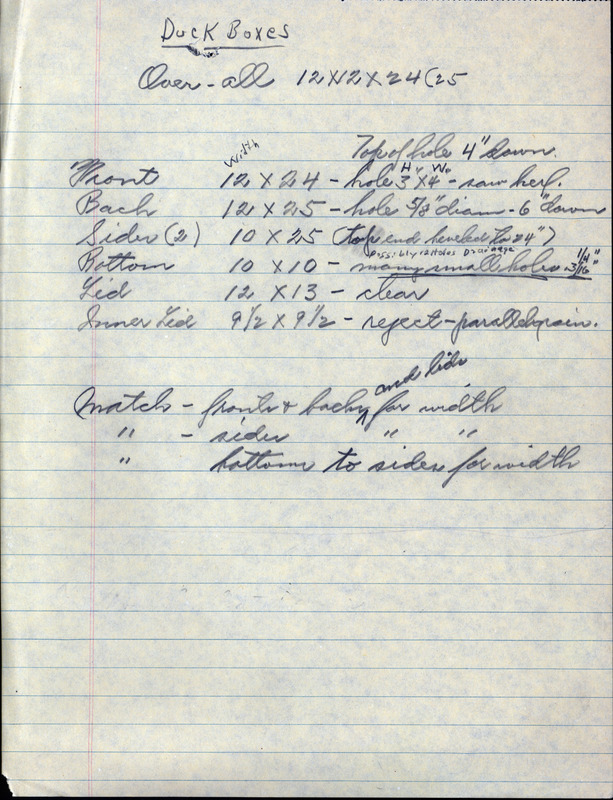 Duck Boxes
Over-all 12X12X24(25
Width
Top of hole 4" down.
Front 12 X 24 - hole 3"H X 4"W - saw kerf.
Back 12 X 25 - hole 5/8" diam - 6" down
Sides (2) 10 X 25 (top end beveled to 24")
Possibly 12 Holes Drainage 1/4"
Bottom 10 X 10 - many small holes 3/16"
Lid 12 X 13 - clear
Inner Lid 9 1/2 X 9 1/2 - reject - parallel grain.
and lids
Match - fronts & backs ^ for width
" - sides " "
" bottoms to sides for width